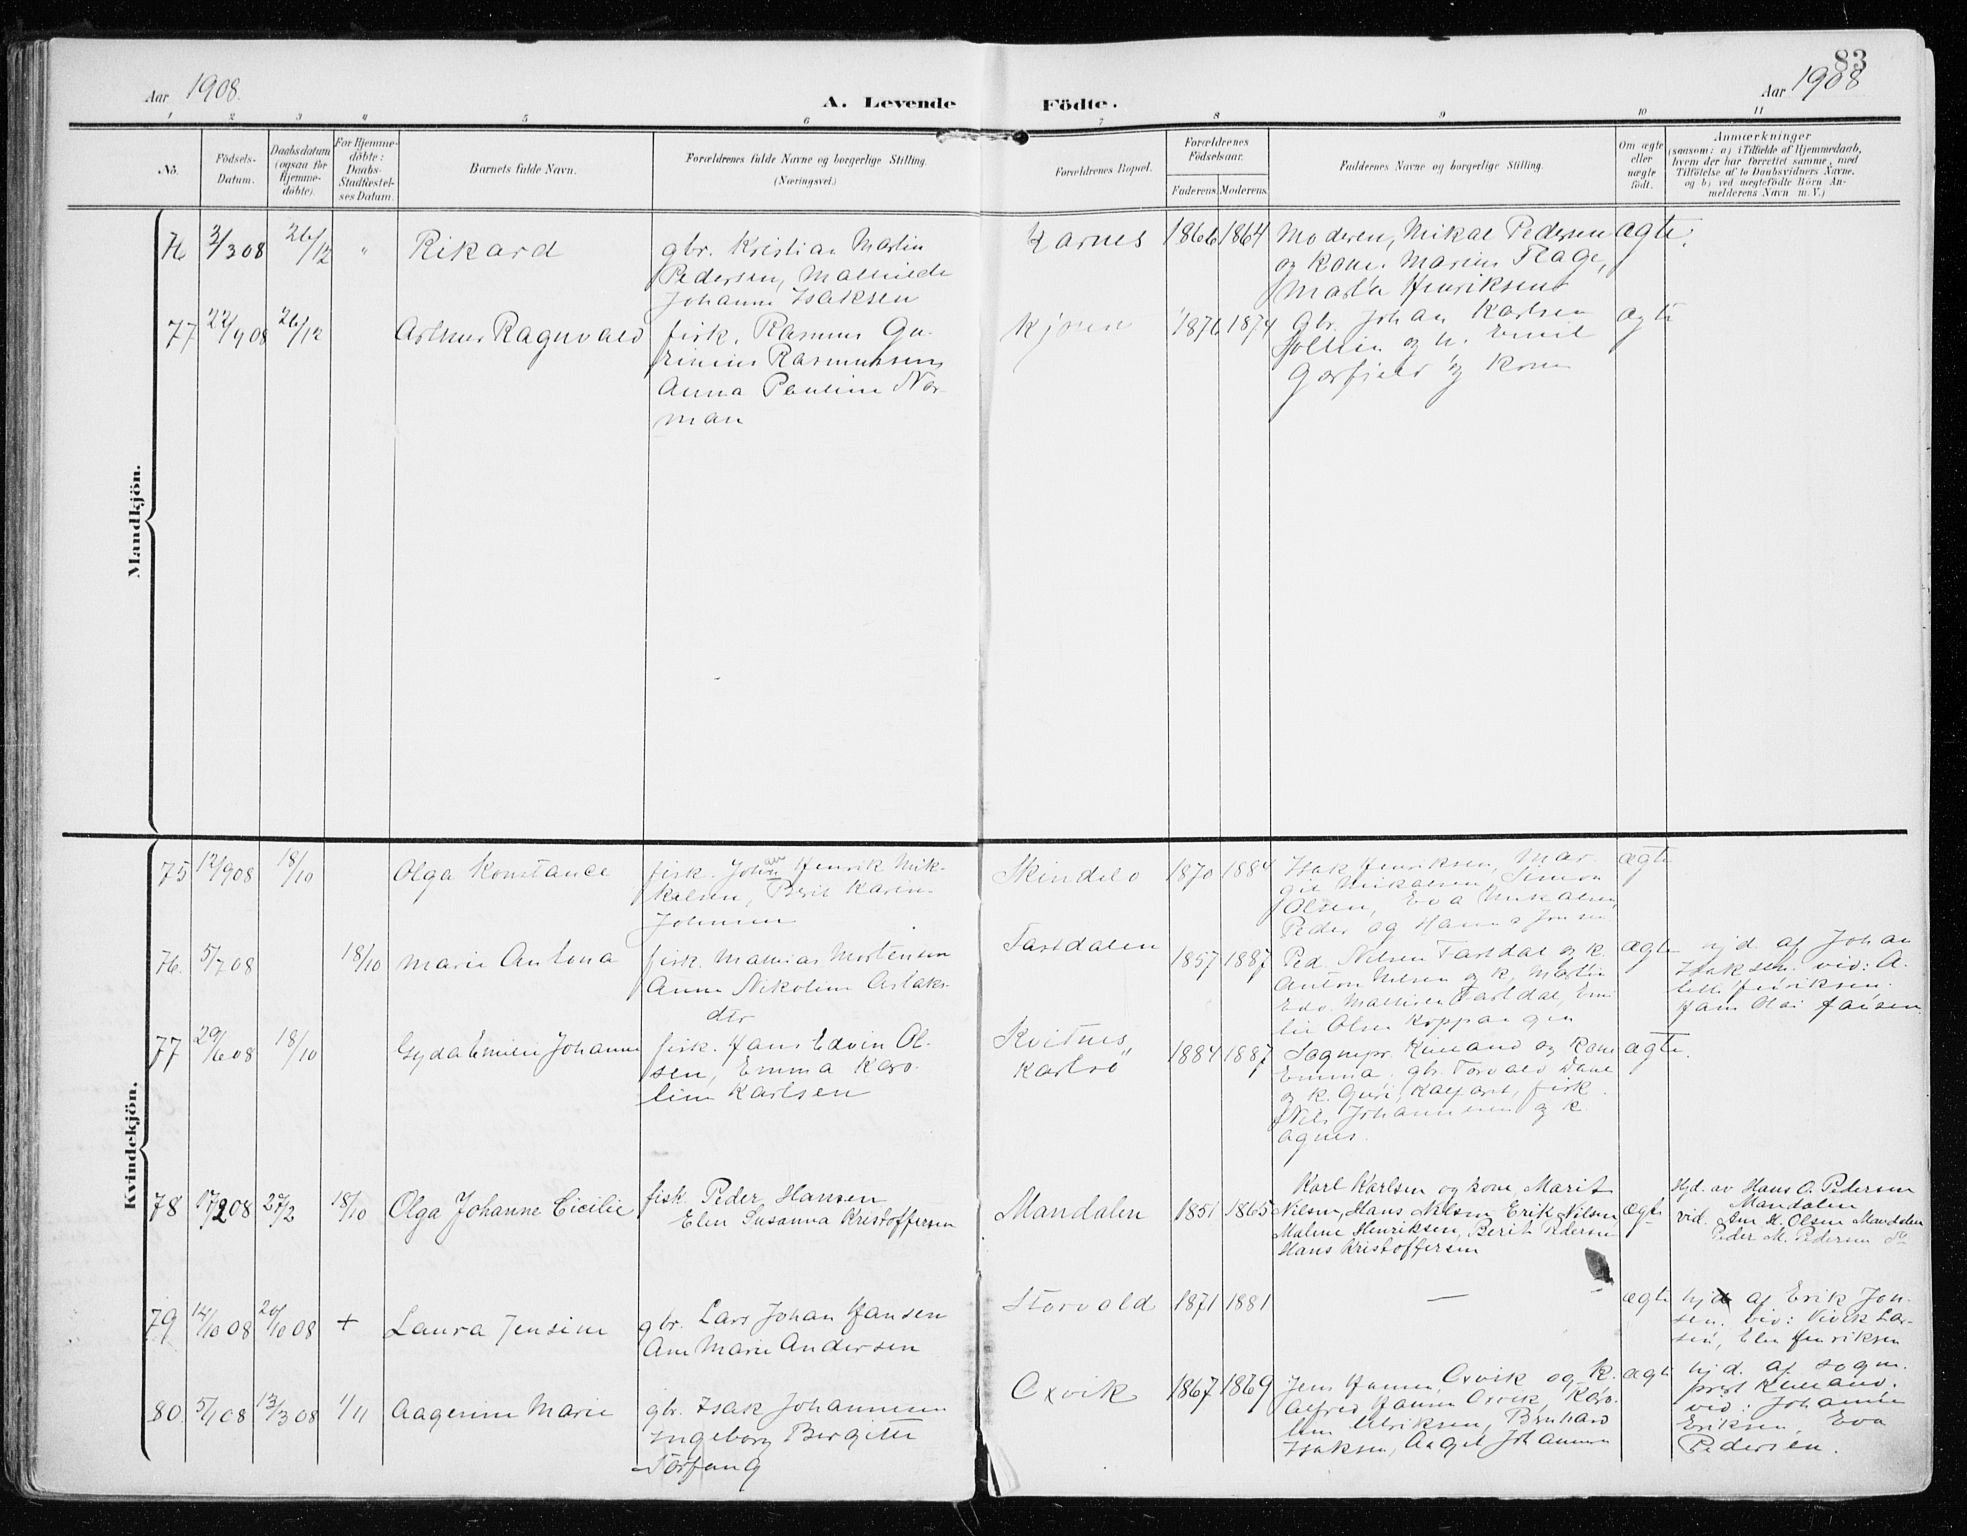 83
Aar 1908.
A. Levende Födte.
Aar 1908
1 2 3 4 5 6 7 8 9 10 11
No.
Födsels-
Datum.
Daabsdatum
(ogsaa for
Hjemme-
döbte).
For Hjemme-
döbte:
Daabs-
Stadfæstel-
ses Datum.
Barnets fulde Navn.
Forældrenes fulde Navne og borgerlige Stilling.
(Næringsvei.)
Forældrenes Bopæl.
Forældrenes
Födselsaar.
Faderens. Moderens.
Faddernes Navne og borgerlige Stilling.
Om ægte
eller
uægte
födt.
Anmærkninger
(saasom: a) i Tilfælde af Hjemmedaab,
hvem der har forrettet samme, med
Tilföielse af to Daabsvidners Navne.
og b) ved uægtefödte Börn An-
melderens Navn m. V.)
Mandkjön.
76 3/3 08 26/12 " Rikard
gbr. Kristian Martin
Pedersen, Mathilde
Johanne Isaksen
Karnes 1866 1864
Moderen, Mikal Pedersen
og kone. Marius Flage,
Martin Henriksen
ægte.
77 22/9 08 26/12 Arthur Ragnvald
fisk. Rasmus
Rasmussen,
Anna Pauline Nor-
man
1876 1874
Gbr. Johan Karlsen
og h. Emil
og kone
ægte
Kvindekjön.
75 12/9 08 18/10 Olga Konstance
fisk. Johan Henrik Mik-
kelsen, Berit Karin
Johnsen
Skindelo 1870 1884
Isak Henriksen, Mar-
git Mikalsen, Simon
Olsen, Eva Mikalsen,
Peder og Hanna Jonsen
ægte
76. 5/7 08 18/10 Marie Antona
fisk. Mathias Mortensen
Anne Nikoline Aslaks-
dtr
Fastdalen 1857 1887
Ped. Nilsen Fastdal og k.
Anton Nilsen og k, Martin
Edv. Mathisen Fastdal, Emi
lie Olsen Koppangen
ægte
hjd. af Johan
Isaksen. vid: A.
Fredriksen.
Hans Olai Jansen
77 29/6 08 18/10 Gyda Emilie Johanne
fisk. Hans Edvin Ol-
sen, Emma Karo-
line Karlsen
Kvitnes
Karlsö 1884 1887
Sognepr. Kinand og kone
Emma. gbr. Torvald Dahl
og k. Guri, Kalfart, fisk.
Nils Johannesen og k.
Agnes.
ægte.
78 17/2 08 27/2 18/10 Olga Johanne Cicilie
fisk Peder Hansen
Elen Susanna Kristoffersen
Mandalen 1851 1865
Karl Karlsen og kone, Marit
Nilsen, Hans Nilsen Erik Nilsen
Malene Henriksen, Berit Pedersen
Hans Kristoffersen
ægte
Hjd. av Hans O. Pedersen
Mandalen
vid. H. Olsen Mandalen
Peder M. Pedersen do
79 14/10 08 20/10 08 + Laura Jensine
gbr. Lars Johan Hansen
Ane Marie Andersen
Storvold 1871 1881
— –
ægte
hjd af Erik Jon-
sen. vid: Lar-
sen, Elen Henriksen
80. 5/1 08 13/3 08 1/11 Aagerine Marie
gbr. Isak Johannesen
Ingeborg Birgitte
Torfang
Oxvik 1867 1869
Jens Hansen, Oxvik og k.
Alfred Hansen Oxvik, Karo-
line Ulriksen, Bernhard
Isaksen, Aagot Johannesen
ægte
hjd. af sogne-
prest Kinand.
vid: Johanne
Eriksen, Eva
Pedersen.